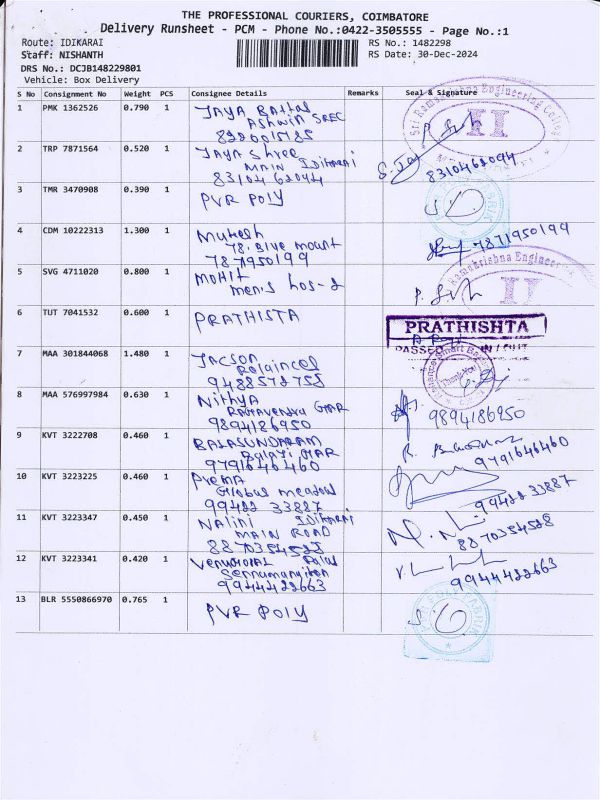 THE PROFESSIONAL COURIERS, COIMBATORE
Delivery Runsheet - PCM - Phone No.:0422-3505555 - Page No.:1
Route: IDIKARAI
RS No.: 1482298
Staff: NISHANTH
RS Date: 30-Dec-2024
DRS No.: DCJB148229801
Vehicle: Box Delivery
S No Consignment No Weight PCS Consignee Details Remarks Seal & Signature
1 PMK 1362526 0.790 1 JAYA
Ashwin SREC
Sri Ramakrishna Engineering College
II
2 TRP 7871564 0.520 1 JAYA Shree
MAIN Idikarai
83104 62094
S. Jay
8310462094
3 TMR 3470908 0.390 1 PVR POLY
4 CDM 10222313 1.300 1 Mukesh
78. Blue mount
7871950199
7871950199
5 SVG 4711020 0.800 1 MOHIT
men's hos-2
Ramakrishna Engineering
II
6 TUT 7041532 0.600 1 PRATHISTA
PRATHISHTA
PASSED
7 MAA 301844068 1.480 1 JACSON
Relainces
9488572758
Thank You
8 MAA 576997984 0.630 1 Nithya
RAGAVENDRA GAR
9894186950
9894186950
9 KVT 3222708 0.460 1 BALASUNDARAM
Balaji GAR
9791646460
9791646460
10 KVT 3223225 0.460 1 Prema
Globus meadow
99422 33887
99422 33887
11 KVT 3223347 0.450 1 Nalini Idikarai
MAIN ROAD
8870354528
8870354528
12 KVT 3223341 0.420 1 VENUGOPAL
9944422663
9944422663
13 BLR 5550866970 0.765 1 PVR POLY